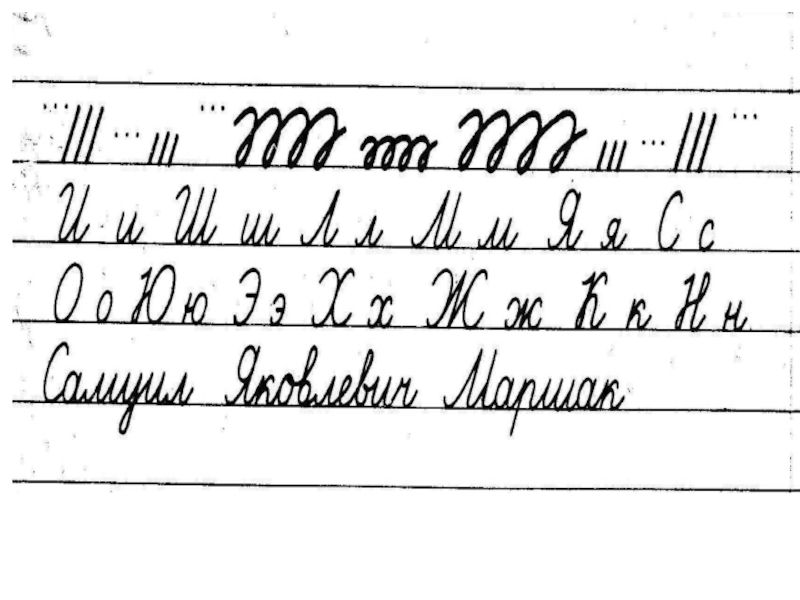 И и Ш ш Л л М м Я я С с
О о Ю ю Э э Х х Ж ж К к Н н
Самуил Яковлевич Маршак